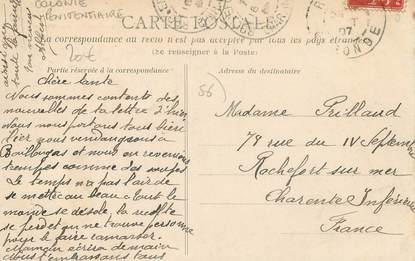 COLONIE
PENITENTIAIRE
CARTE POSTALE
La correspondance au recto n'est pas acceptée par tous les pays étrangers
(Se renseigner à la Poste)
20€
Partie réservée à la correspondance
Adresse du destinataire
56
Chère tante
Nous sommes contents des
nouvelles de ta lettre d'hier
nous nous portons tous bien
nous vendangeons à
et nous en revenons
trempés comme des soupes
Le temps n'a pas l'air de
se mettre au beau tout le
monde se désole, la récolte
se perd et on ne trouve personne
pour le faire ramasser.
Maman écrira demain
nous t'embrassons tous
Madame Prillaud
79 rue du IV Septembre
Rochefort sur mer
Charente Inférieure
France